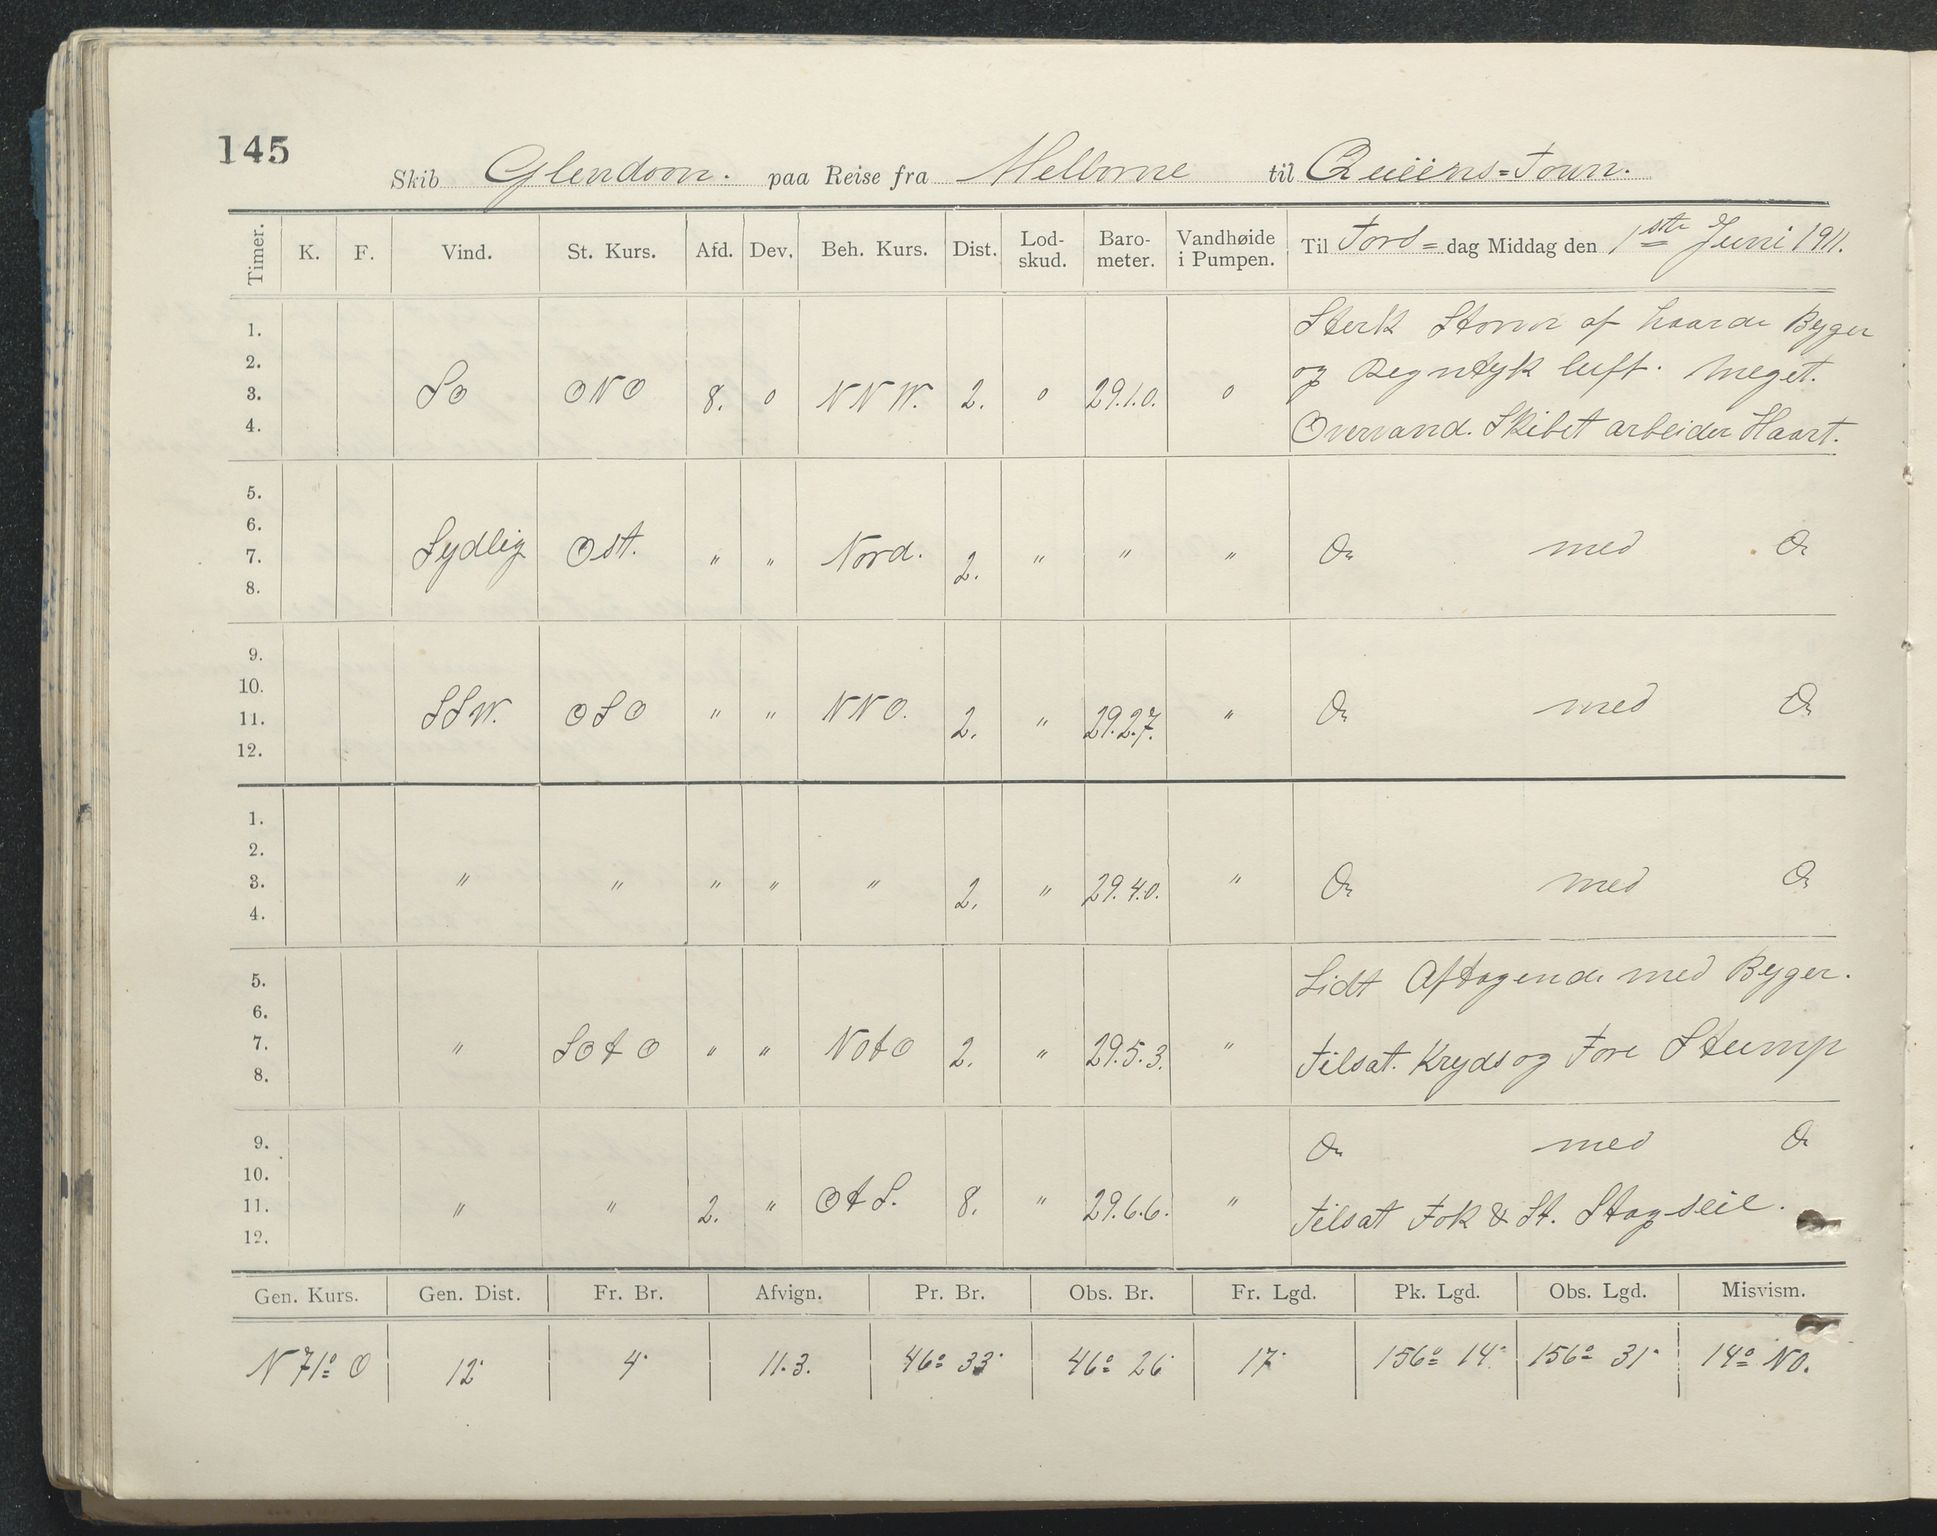 145
Skib Glendoon. paa Reise fra Melborne til Queens=Town.
Timer. K. F. Vind. St. Kurs. Afd. Dev. Beh. Kurs. Dist. Lod-skud. Baro-meter. Vandhøide i Pumpen. Til Tors= dag Middag den 1ste Juni 1911.
1.
2.
3.
4.
SO ONO 8. 0 NNW. 2. 0 29.1.0. 0
Sterk Storm af haarde Byger
og Regntyk luft. Meget.
Overvand. Skibet arbeider Haart.
5.
6.
7.
8.
Sydlig Ost. " " Nord. 2. " " " Do med Do
9.
10.
11.
12.
SSW. OSO " " NNO. 2. " 29.2.7. " Do med Do
1.
2.
3.
4.
" " " " " 2. " 29.4.0. " Do med Do
5.
6.
7.
8.
" SOtO " " NOtO 2. " 29.5.3. "
Lidt Aftagende med Byger.
Tilsat. Kryds og Fore Stump
9.
10.
11.
12.
" " 2. " OtS. 8. " 29.6.6. "
Do med Do
Tilsat Fok & St. Stagseil.
Gen. Kurs. Gen. Dist. Fr. Br. Afvign. Pr. Br. Obs. Br. Fr. Lgd. Pk. Lgd. Obs. Lgd. Misvism.
N 71° O 12' 4' 11.3. 46° 33' 46° 26' 17' 156° 14' 156° 31' 14° NO.